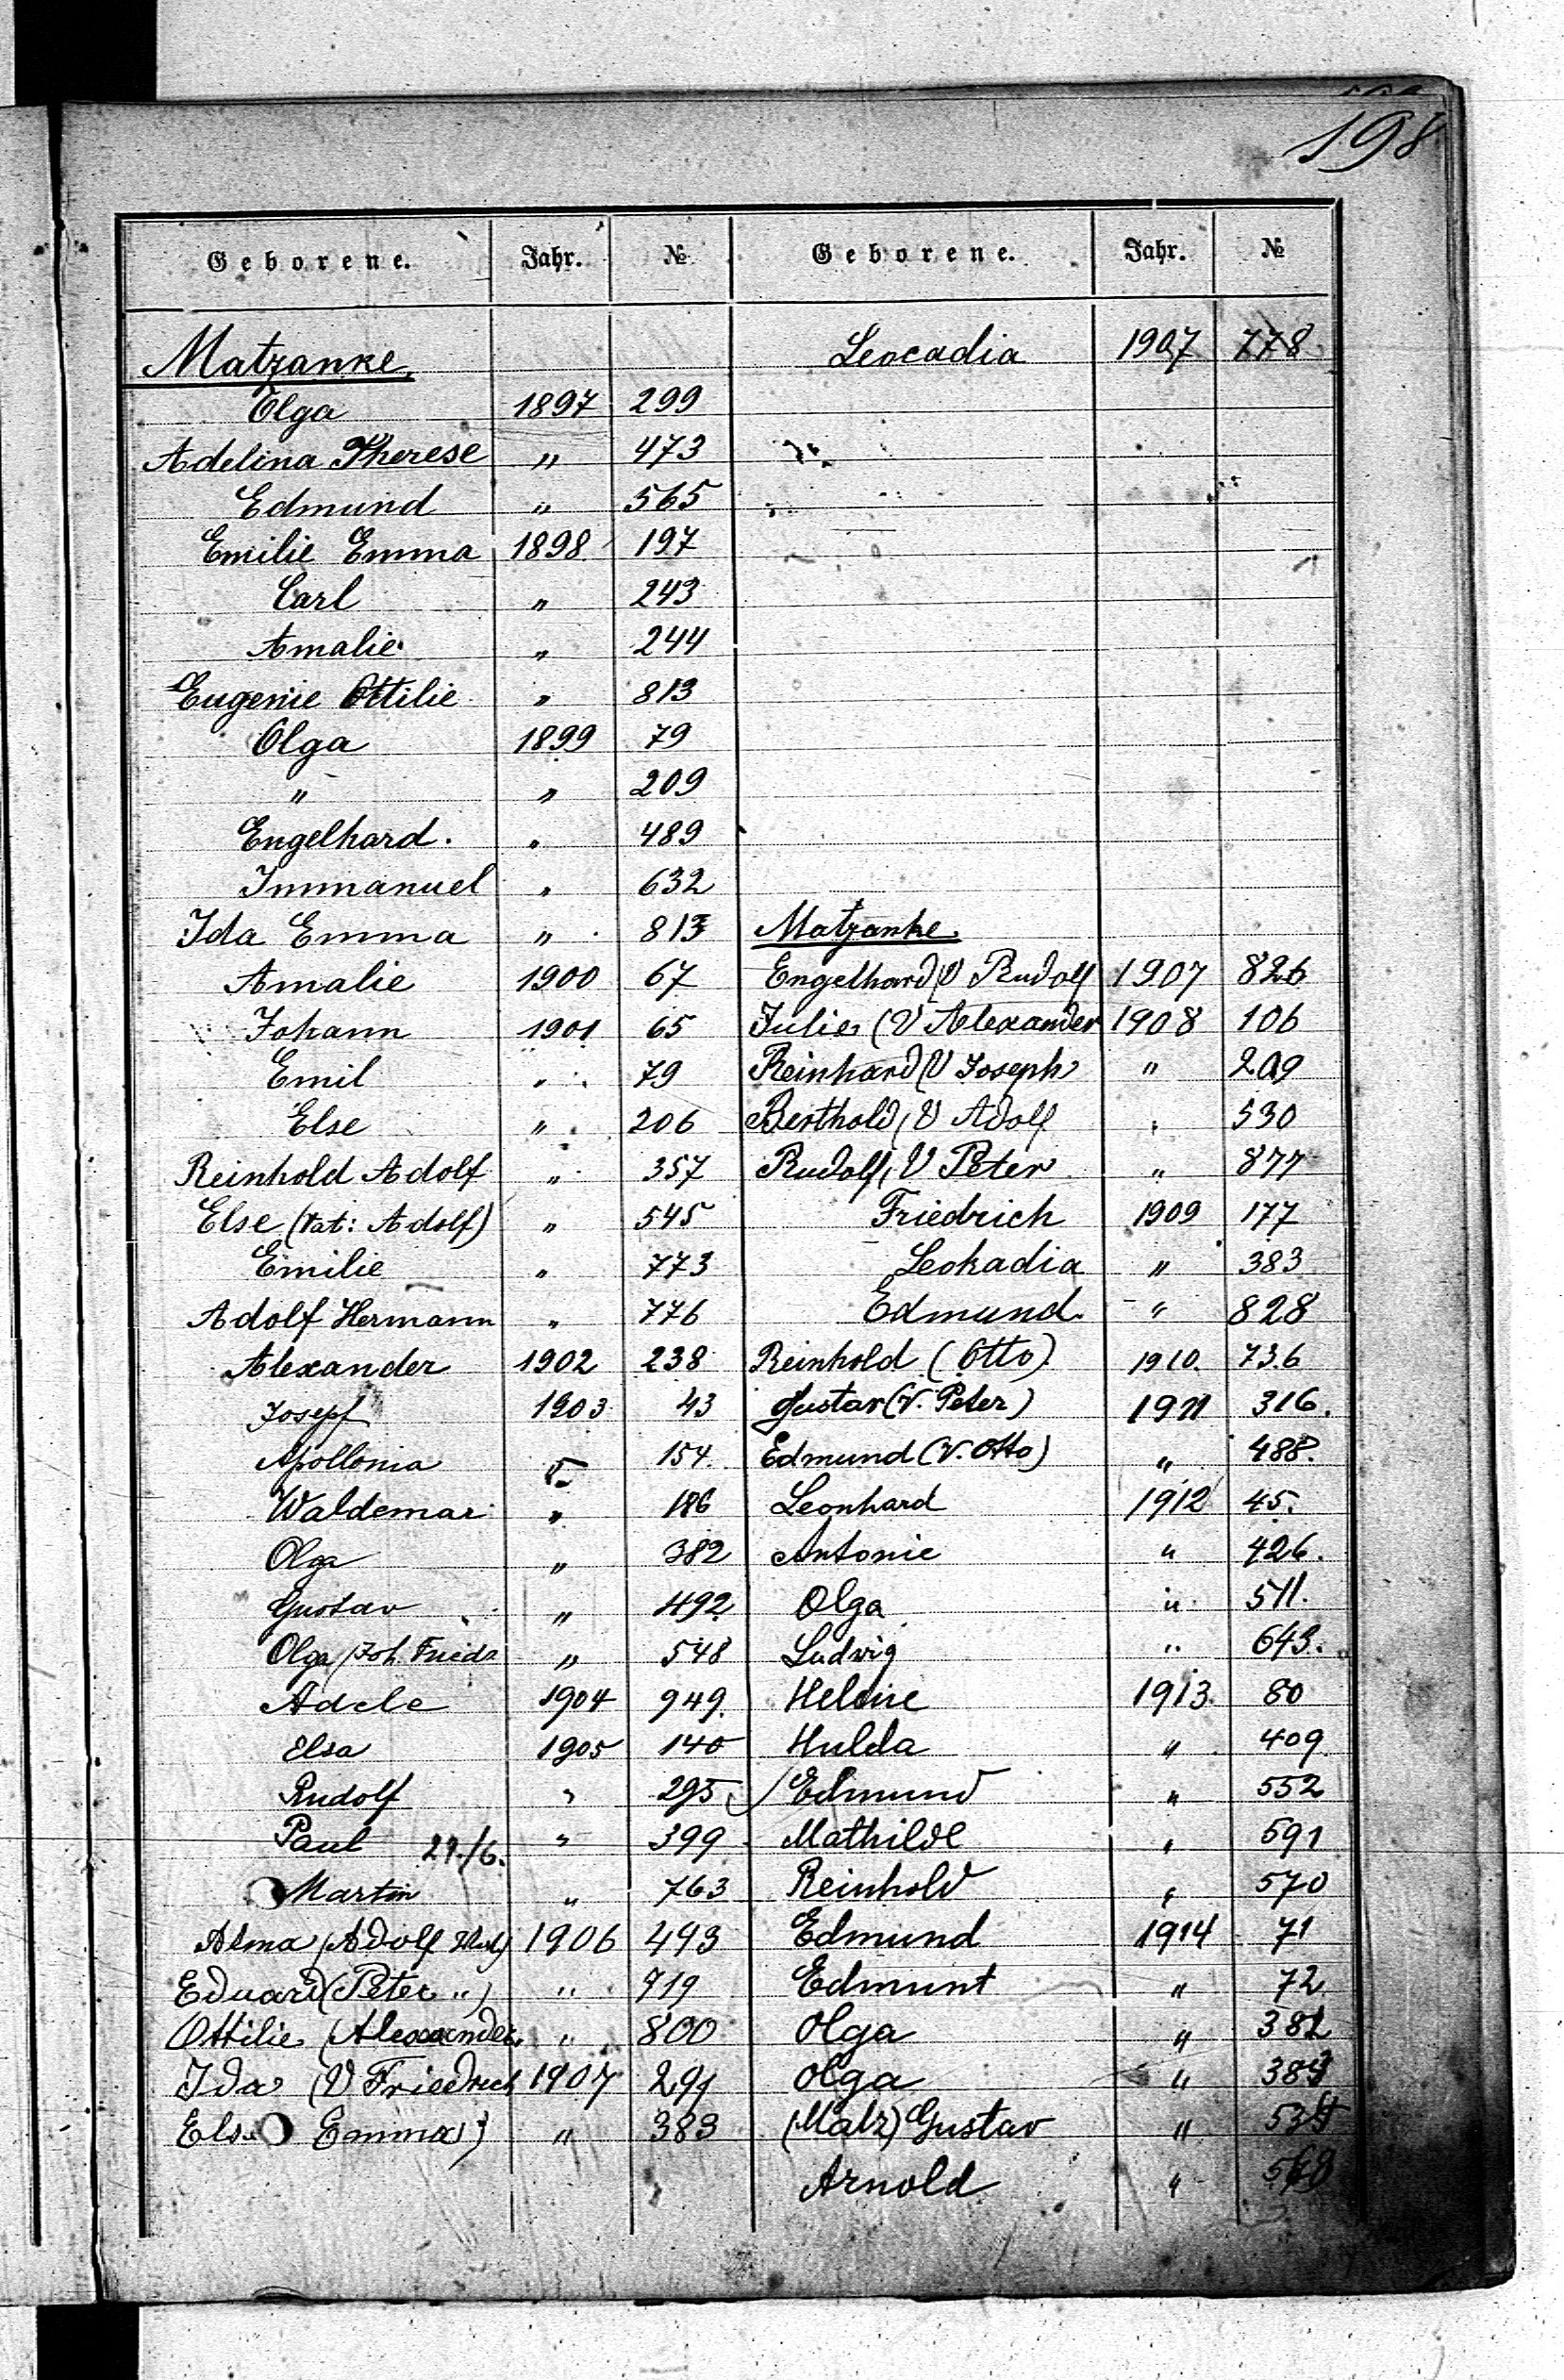 198
Geborene. Jahr. №
Matzanke.
Olga 1897 299
Adelina Therese " 473
Edmund " 565
Emilie Emma 1898 197
Carl " 243
Amalie " 244
Eugenie Ottilie " 813
Olga 1899 79
" " 209
Engelhard. " 489
Immanuel " 632
Ida Emma " 813
Amalie 1900 67
Johann 1901 65
Emil " 79
Else " 206
Reinhold Adolf " 357
Else (Vat: Adolf) " 545
Emilie " 773
Adolf Hermann " 776
Alexander 1902 238
Josepf 1903 43
Apollonia 154.
Waldemar " 186
Olga " 382
Gustav " 492
Olga (Joh. Friedr " 548
Adele 1904 949.
Elsa 1905 140
Rudolf " 295
Paul 29./6. " 399
Martin " 763
Alma (Adolf 1906 493
Eduard (Peter ") " 719
Ottilie (Alexander. " 800
Ida (V Friedrich 1907 291
Else Emma) " 383
Geborene. Jahr. №
Leocadia 1907 778
Matzanke.
Engelhard (V Rudolf 1907 826
Julie (V Alexander 1908 106
Reinhard (V Joseph " 209
Berthold (V Adolf " 530
Rudolf, V Peter " 877
Friedrich 1909 177
Leokadia " 383
Edmund " 828
Reinhold (Otto) 1910. 736
Gustav (V. Peter) 1911 316.
Edmund (V. Otto) " 488.
Leonhard 1912 45.
Antonie " 426.
Olga " 511.
Ludwig " 643.
Helene 1913 80
Hulda " 409
Edmund " 552
Mathilde " 591
Reinhold " 570
Edmund 1914 71
Edmunt " 72
Olga " 382
Olga " 383
(Malz) Gustav "
Arnold "